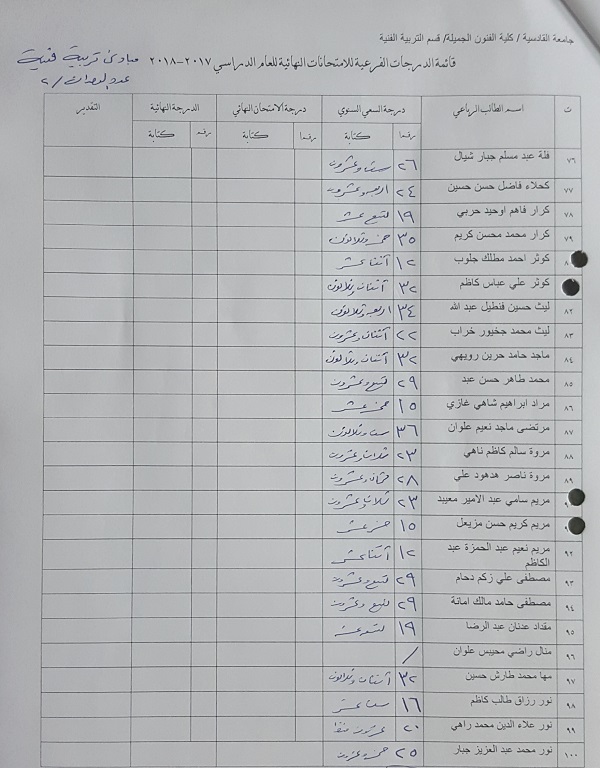 جامعة القادسية / كلية الفنون الجميلة/ قسم التربية الفنية
قائمة الدرجات الفرعية للامتحانات النهائية للعام الدراسي ٢٠١٧-٢٠١٨ مبادئ تربية فنية
عدد الوحدات / ٢
ت اسم الطالب الرباعي درجة السعي السنوي درجة الامتحان النهائي الدرجة النهائية التقدير
رقما كتابة رقما كتابة رقما كتابة
٧٦ فلة عبد مسلم جبار شيال ٢٦ ست وعشرون
٧٧ كحلاء فاضل حسن حسين ٢٤ اربعة وعشرون
٧٨ كرار فاهم اوحيد حربي ١٩ تسع عشر
٧٩ كرار محمد محسن كريم ٣٥ خمس وثلاثون
٨ كوثر احمد مطلك جلوب ١٢ أثنتا عشر
كوثر علي عباس كاظم ٣٢ أثنتان وثلاثون
٨٢ ليث حسين فنطيل عبد الله ٣٤ اربعة وثلاثون
٨٣ ليث محمد جخيور خراب ٢٢ أثنتان وعشرون
٨٤ ماجد حامد حرين رويهي ٣٢ أثنتان وثلاثون
٨٥ محمد طاهر حسن عبد ٢٩ تسع وعشرون
٨٦ مراد ابراهيم شاهي غازي ١٥ خمس عشر
٨٧ مرتضى ماجد نعيم علوان ٣٦ ست وثلاثون
٨٨ مروة سالم كاظم ناهي ٢٣ ثلاث وعشرون
٨٩ مروة ناصر هدهود علي ٢٨ ثمان وعشرون
٩ مريم سامي عبد الامير معيبد ٢٣ ثلاث وعشرون
مريم كريم حسن مزيعل ١٥ خمس عشر
٩٢ مريم نعيم عبد الحمزة عبد ١٢ أثنتا عشر
الكاظم
٩٣ مصطفى علي زكم دحام ٢٩ تسع وعشرون
٩٤ مصطفى حامد مالك امانة ٢٩ تسع وعشرون
٩٥ مقداد عدنان عبد الرضا ١٩ تسع عشر
٩٦ منال راضي محيبس علوان /
٩٧ مها محمد طارش حسين ٣٢ أثنتان وثلاثون
٩٨ نور رزاق طالب كاظم ١٦ ست عشر
٩٩ نور علاء الدين محمد راهي ٢٠ عشرون فقط
١٠٠ نور محمد عبد العزيز جبار ٢٥ خمس وعشرون